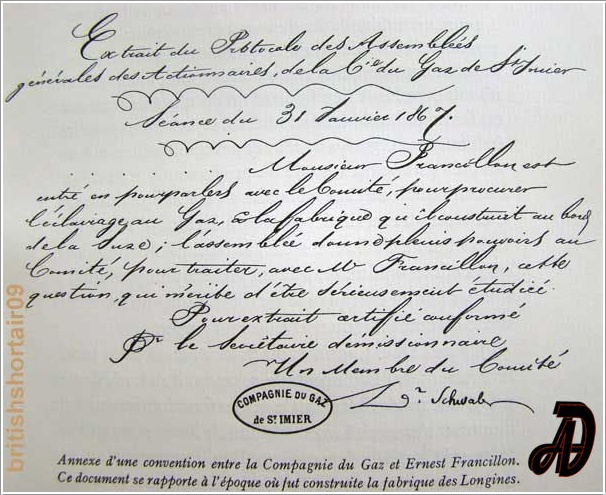 Extrait du Protocole des Assemblées
générales des Actionnaires, de la Cie du Gaz de St Imier
Séance du 31 Janvier 1867.
Monsieur Francillon est
entré en pourparlers avec le Comité, pour procurer
l'éclairage au Gaz, à la fabrique qu'il construit au bord
de la Suze; l'assemblée donne pleins pouvoirs au
Comité, pour traiter, avec Mr Francillon, cette
question, qui mérite d'être sérieusement étudiée.
Pour extrait certifié conforme
Pr le Secrétaire démissionnaire
Un Membre du Comité
Dr Schwab
COMPAGNIE DU GAZ
de ST IMIER
Annexe d'une convention entre la Compagnie du Gaz et Ernest Francillon.
Ce document se rapporte à l'époque où fut construite la fabrique des Longines.
britishshortair09
AD